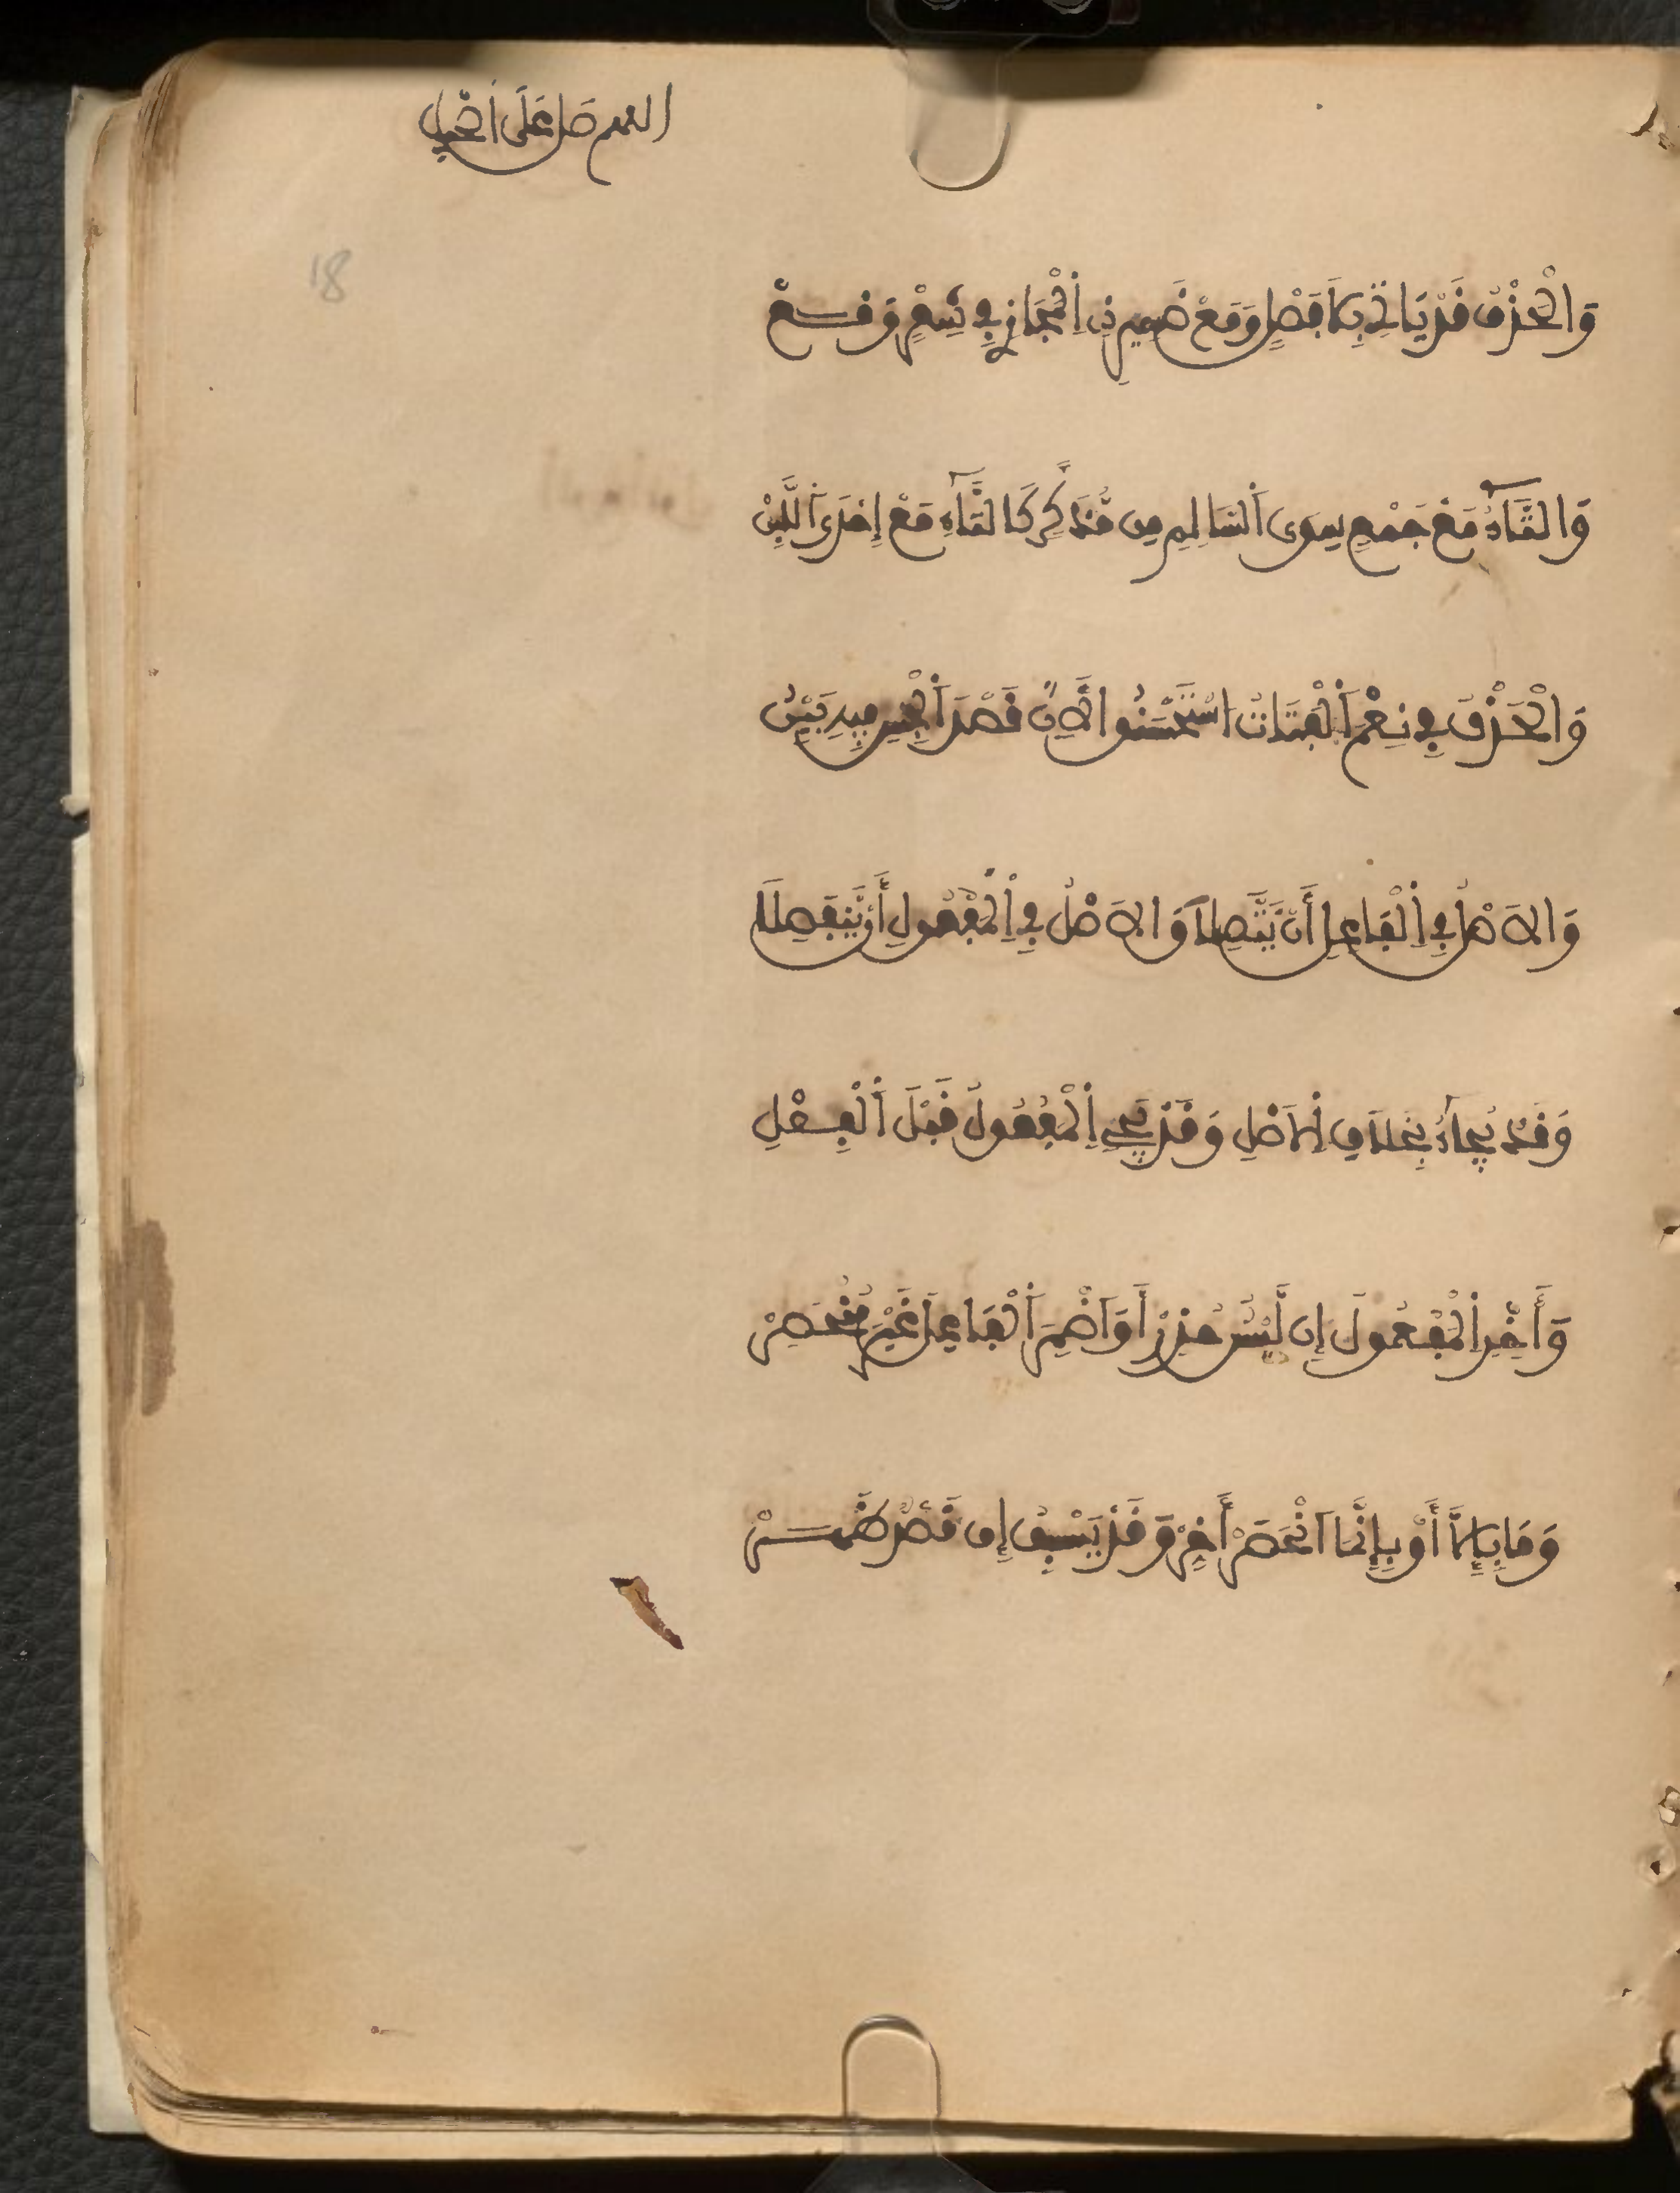 اللهم صل على
18
وَالْحَذْفُ قَدْ يَاتِي بِلَا فَصْلٍ وَمَعْ ضَمِيرِ ذِي الْمَجَازِ فِي شِعْرٍ وَقَعْ
وَالتَّاءُ مَعْ جَمْعٍ سِوَى السَّالِمِ مِن مُّذَكَّرٍ كَالتَّاءِ مَعْ إِحْدَى اللَّبِنْ
وَالْحَذْفَ فِي نِعْمَ الْفَتَاتُ اسْتَحْسَنُوا لِأَنَّ قَصْدَ الْجِنْسِ فِيهِ بَيِّنُ
وَالاَصْلُ فِي الْفَاعِلِ أَنْ يَّتَّصِلَا وَالاَصْلُ فِي الْمَفْعُولِ أَنْ يَّنفَصِلَا
وَقَدْ يُجَاءُ بِخِلَافِ الَاصْلِ وَقَدْ يَجِي الْمَفْعُولُ قَبْلَ الْفِعْلِ
وَأَخِّرِ الْمَفْعُولَ إِن لَّبْسٌ حُذِرْ أَوَ اضْمِرَ الْفَاعِلُ غَيْرَ مُنْحَصِرْ
وَمَا بِإِلَّا أَوْ بِإِنَّمَا انْحَصَرْ أَخِّرْ وَقَدْ يَسْبِقُ إِن قَصْدٌ ظَهَرْ